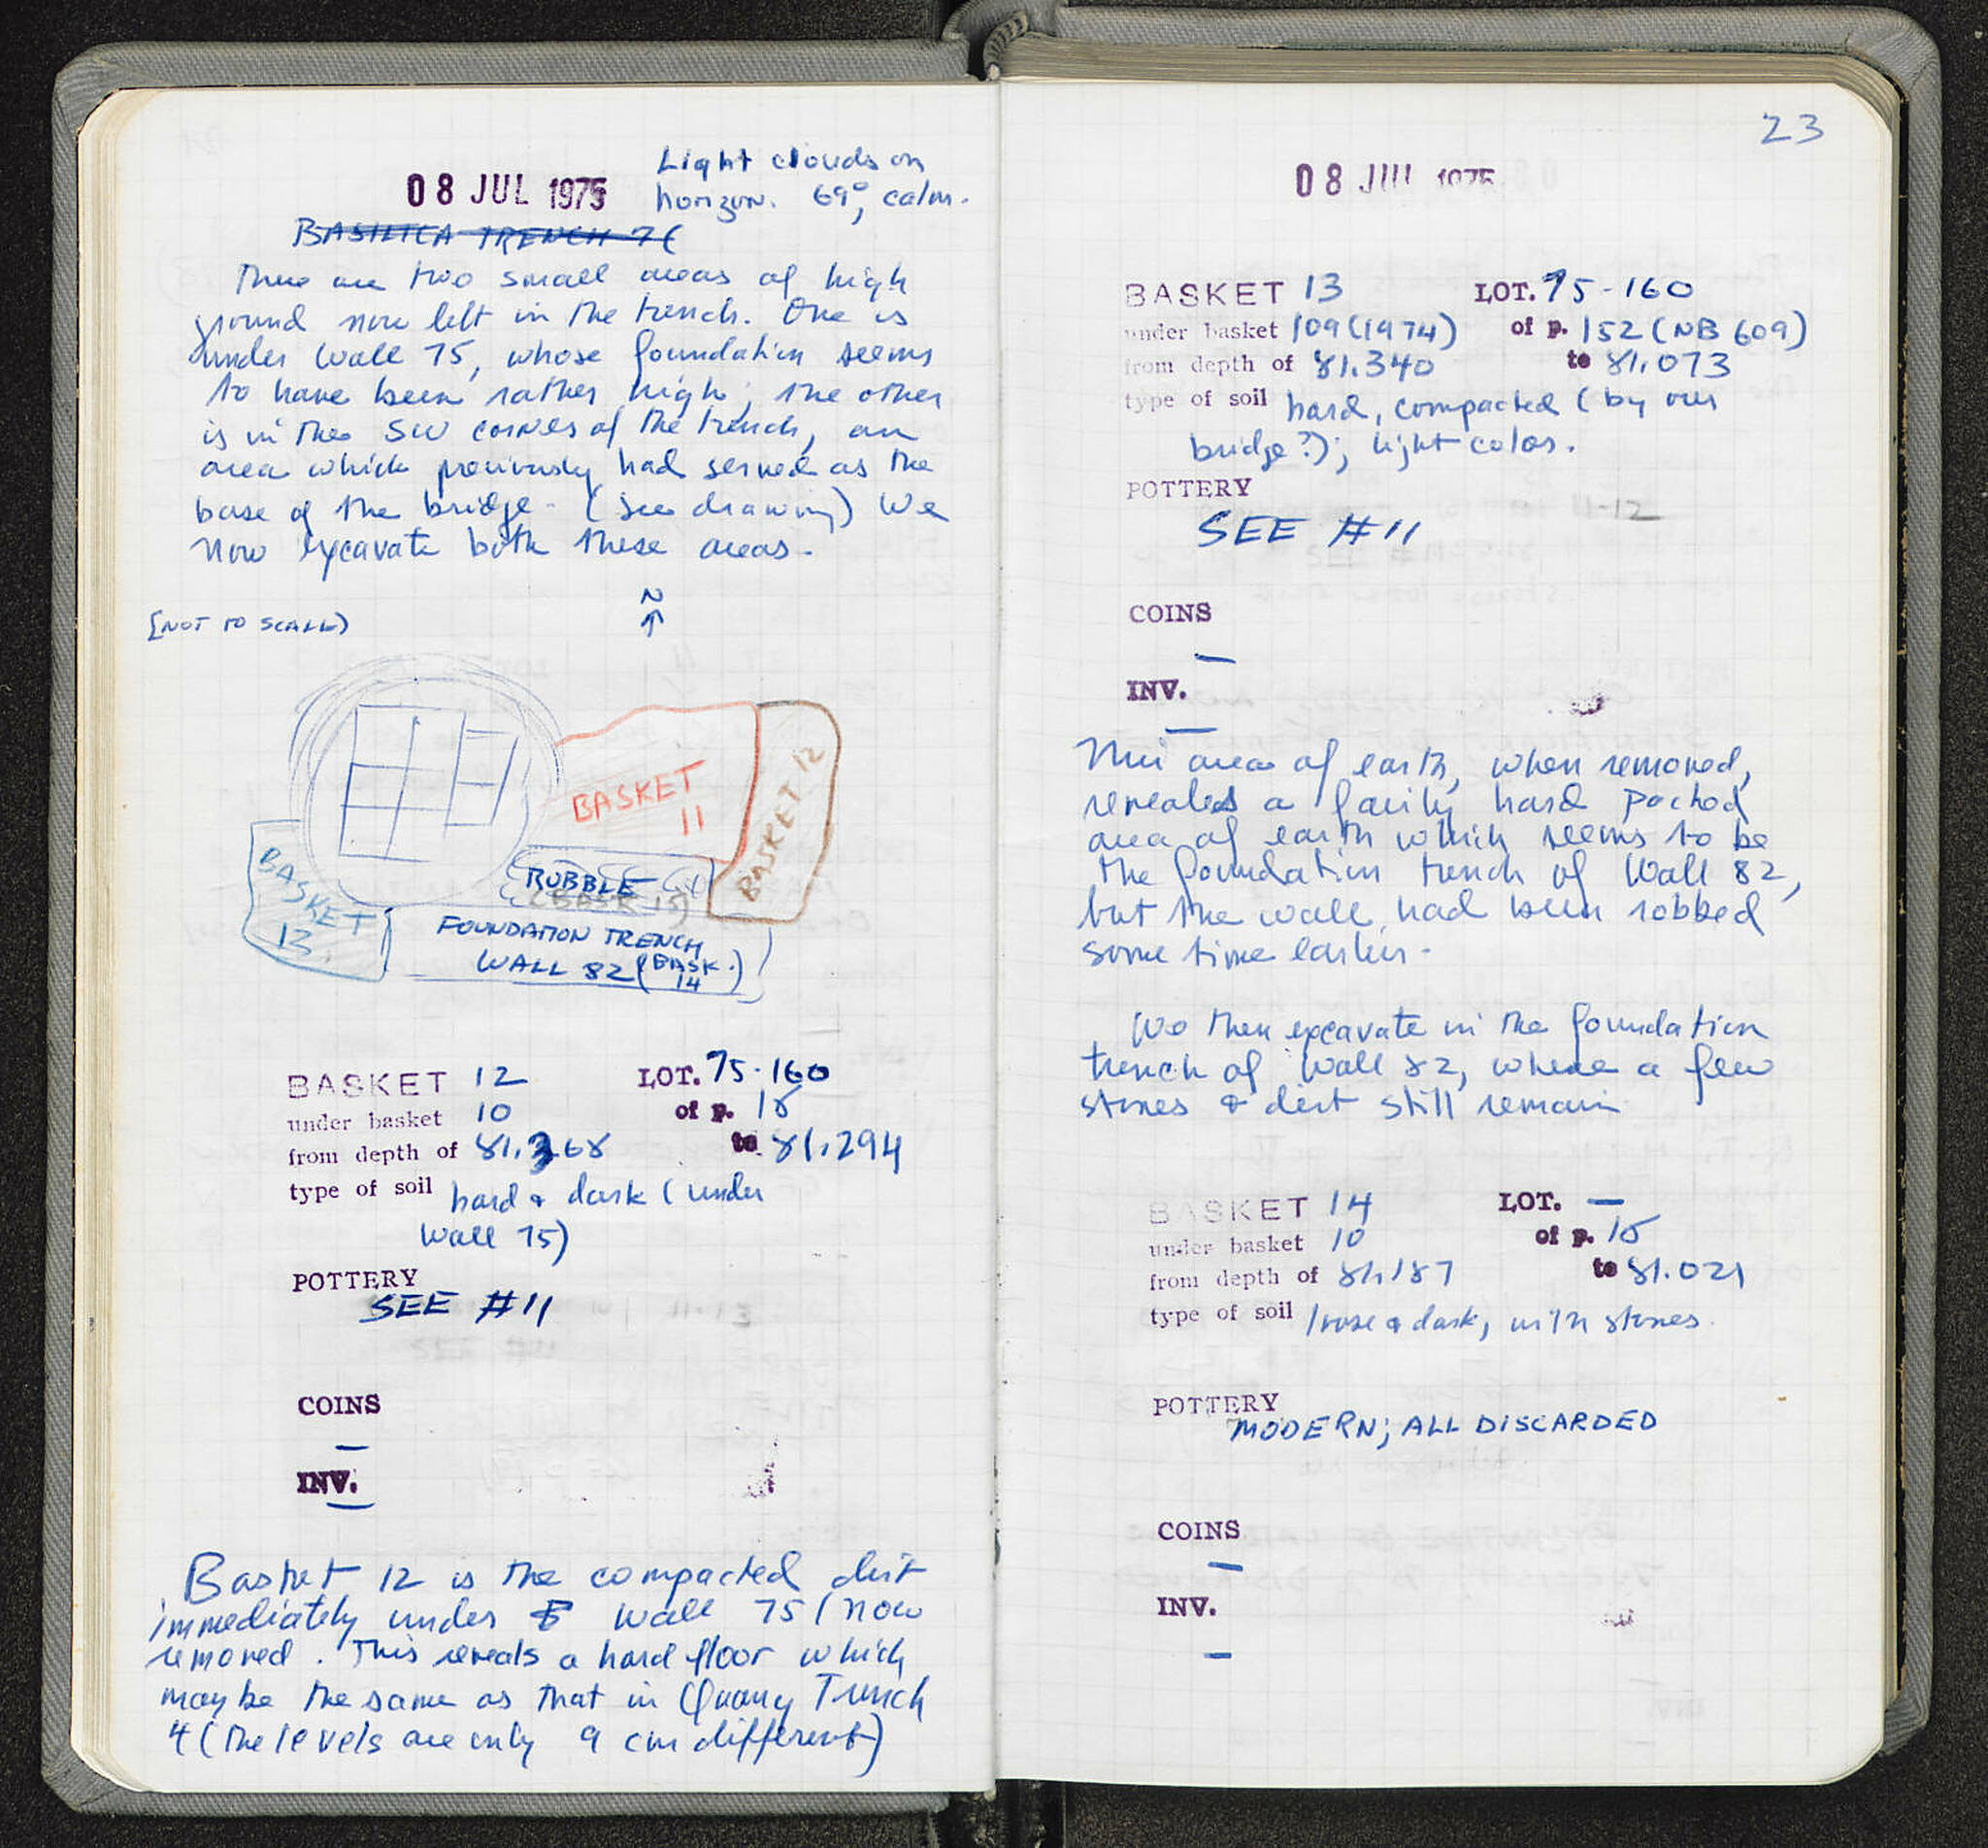 08 JUL 1975
Light clouds on
horizon. 69°, calm.
BASILICA TRENCH 7
There are two small areas of high
ground now left in the trench. One is
under Wall 75, whose foundation seems
to have been rather high; the other
is in the SW corner of the trench, an
area which previously had served as the
base of the bridge. (see drawing) We
now excavate both these areas.
N
[NOT TO SCALE)
BASKET
11
BASKET 12
RUBBLE
(BASK 15)
BASKET
13
FOUNDATION TRENCH
WALL 82 (BASK.
14)
BASKET 12 LOT. 75-160
under basket 10 of p. 18
from depth of 81.368 to 81.294
type of soil hard & dark (under
Wall 75)
POTTERY
SEE #11
COINS
—
INV.
—
Basket 12 is the compacted dirt
immediately under Wall 75 (now
removed. This reveals a hard floor which
may be the same as that in Quarry Trench
4 (the levels are only 9 cm different)
23
08 JUL 1975
BASKET 13 LOT. 75-160
under basket 109 (1974) of p. 152 (NB 609)
from depth of 81.340 to 81.073
type of soil hard, compacted (by our
bridge?); light color.
POTTERY
SEE #11
COINS
—
INV.
—
This area of earth, when removed,
revealed a fairly hard packed
area of earth which seems to be
the foundation trench of Wall 82,
but the wall had been robbed
some time earlier.
We then excavate in the foundation
trench of Wall 82, where a few
stones & dirt still remain
BASKET 14 LOT. —
under basket 10 of p. 18
from depth of 81.187 to 81.021
type of soil loose & dark, with stones.
POTTERY
MODERN; ALL DISCARDED
COINS
—
INV.
—